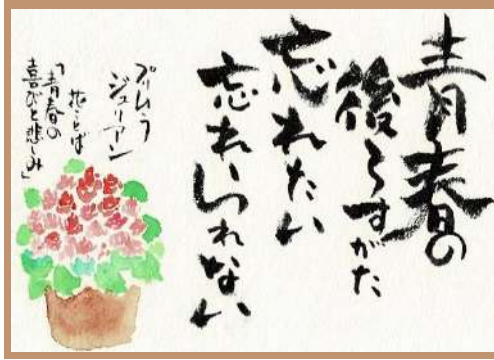 青春の
後ろすがた
忘れたい
忘れられない
プリムラ
ジュリアン
花ことば
「青春の
喜びと悲しみ」